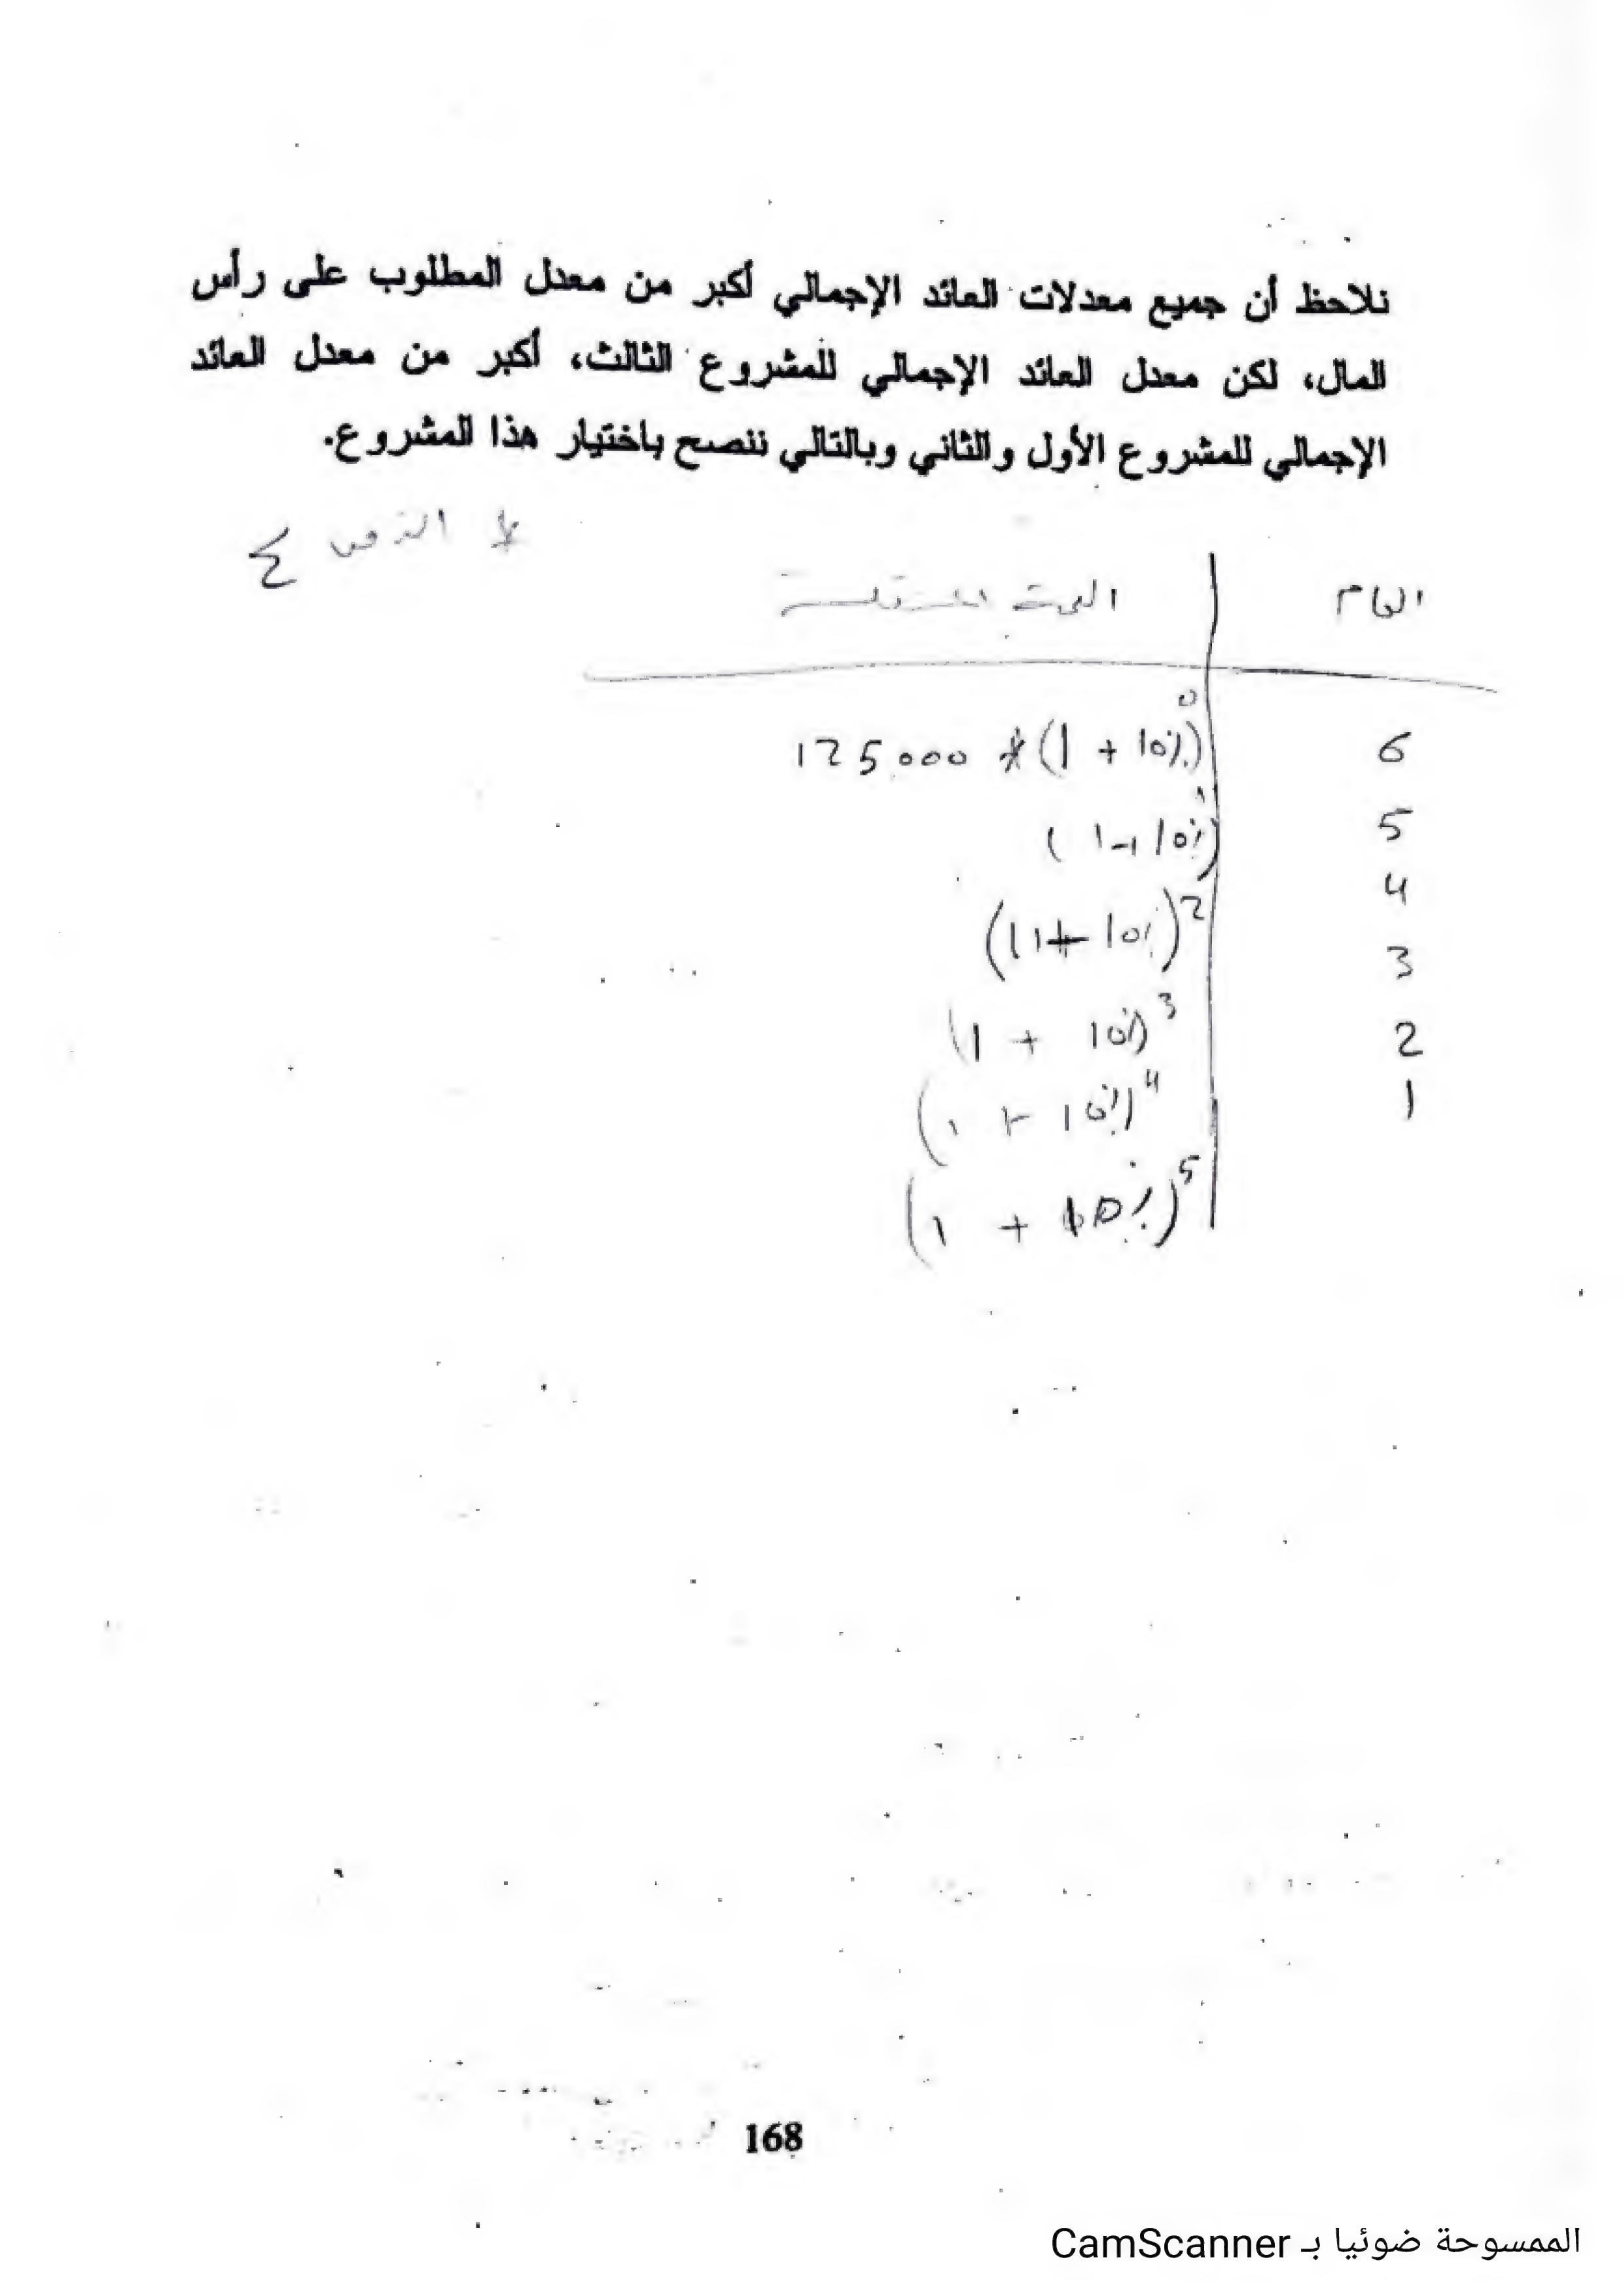 نلاحظ أن جميع معدلات العائد الإجمالي أكبر من معدل المطلوب على رأس
المال، لكن معدل العائد الإجمالي للمشروع الثالث، أكبر من معدل العائد
الإجمالي للمشروع الأول والثاني وبالتالي ننصح باختيار هذا المشروع.
العام
6 125000 * (1 + 10%)^0
5 (1 + 10%)^1
4 (1 + 10%)^2
3 (1 + 10%)^3
2 (1 + 10%)^4
1 (1 + 10%)^5
168
الممسوحة ضوئيا بـ CamScanner